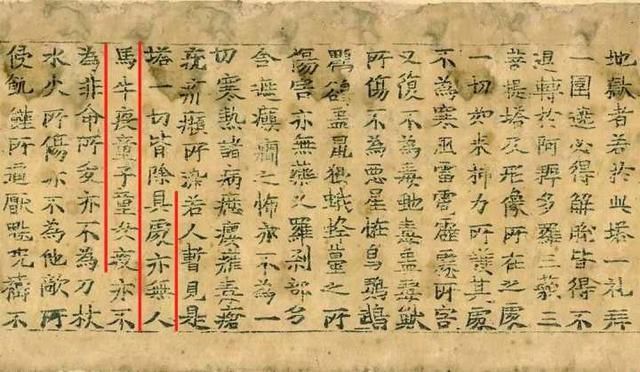 地獄者若於此塔一礼拜
一圍遶必得解脫皆得不
退轉於阿耨多羅三藐三
菩提塔及形像所在之處
一切如來神力所護其處
不為寒風雷電霹靂所害
又復不為毒虵毒蟲毒獸
所傷不為惡星怪鳥鸚鵡
鸜鵒蟲鼠狼蛾蜂蠆之所
傷害亦無藥叉羅剎部多
舍遮癲癇之怖亦不為一
切寒熱諸病癰毒瘡
疣疥癩所染若人暫見是
塔一切皆除其處亦無人
馬牛疫童子童女疫亦不
為非命所夭亦不為刀杖
水火所傷亦不為他敵所
侵飢饉所逼厭魅咒禱不